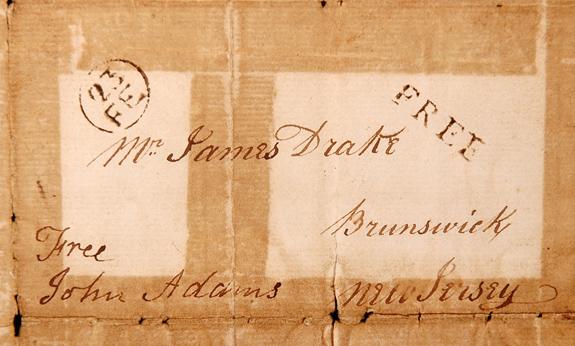 23
FE
FREE
Mr James Drake
Brunswick
Free
John Adams
New Jersey